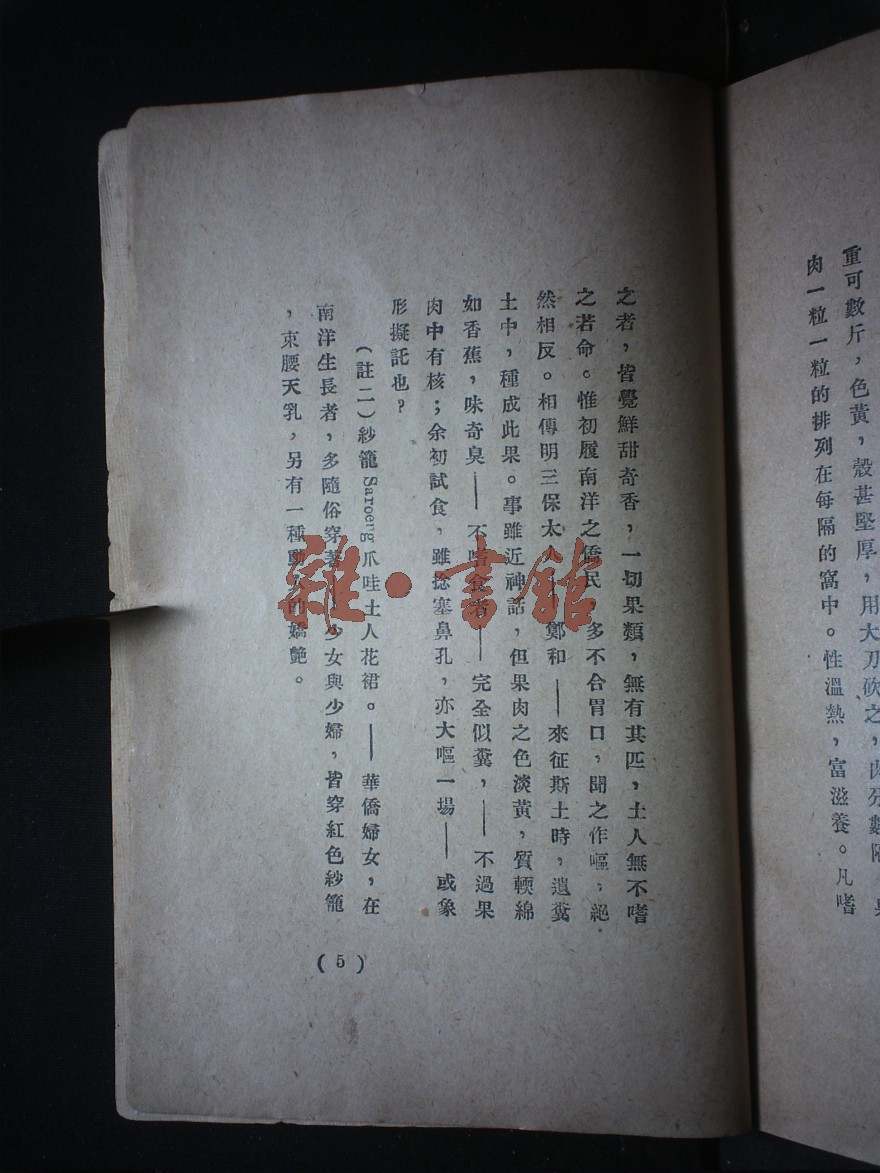 重可數斤，色黃，殼甚堅厚，用大刀砍之，肉分數隔，
肉一粒一粒的排列在每隔的窩中。性溫熱，富滋養。凡嗜
之者，皆覺鮮甜奇香，一切果類，無有其匹，土人無不嗜
之若命。惟初履南洋之僑民，多不合胃口，聞之作嘔，絕
然相反。相傳明三保太人鄭和——來征斯土時，遺糞
土中，種成此果。事雖近神話，但果肉之色淡黃，質輭綿
如香蕉，味奇臭——不嗜食者——完全似糞，——不過果
肉中有核；余初試食，雖捻塞鼻孔，亦大嘔一場——或象
形擬託也？
（註二）紗籠Saroeng爪哇土人花裙。——華僑婦女，在
南洋生長者，多隨俗穿著少女與少婦，皆穿紅色紗籠
，束腰天乳，另有一種動人的嬌艷。
(5)
雜·書館